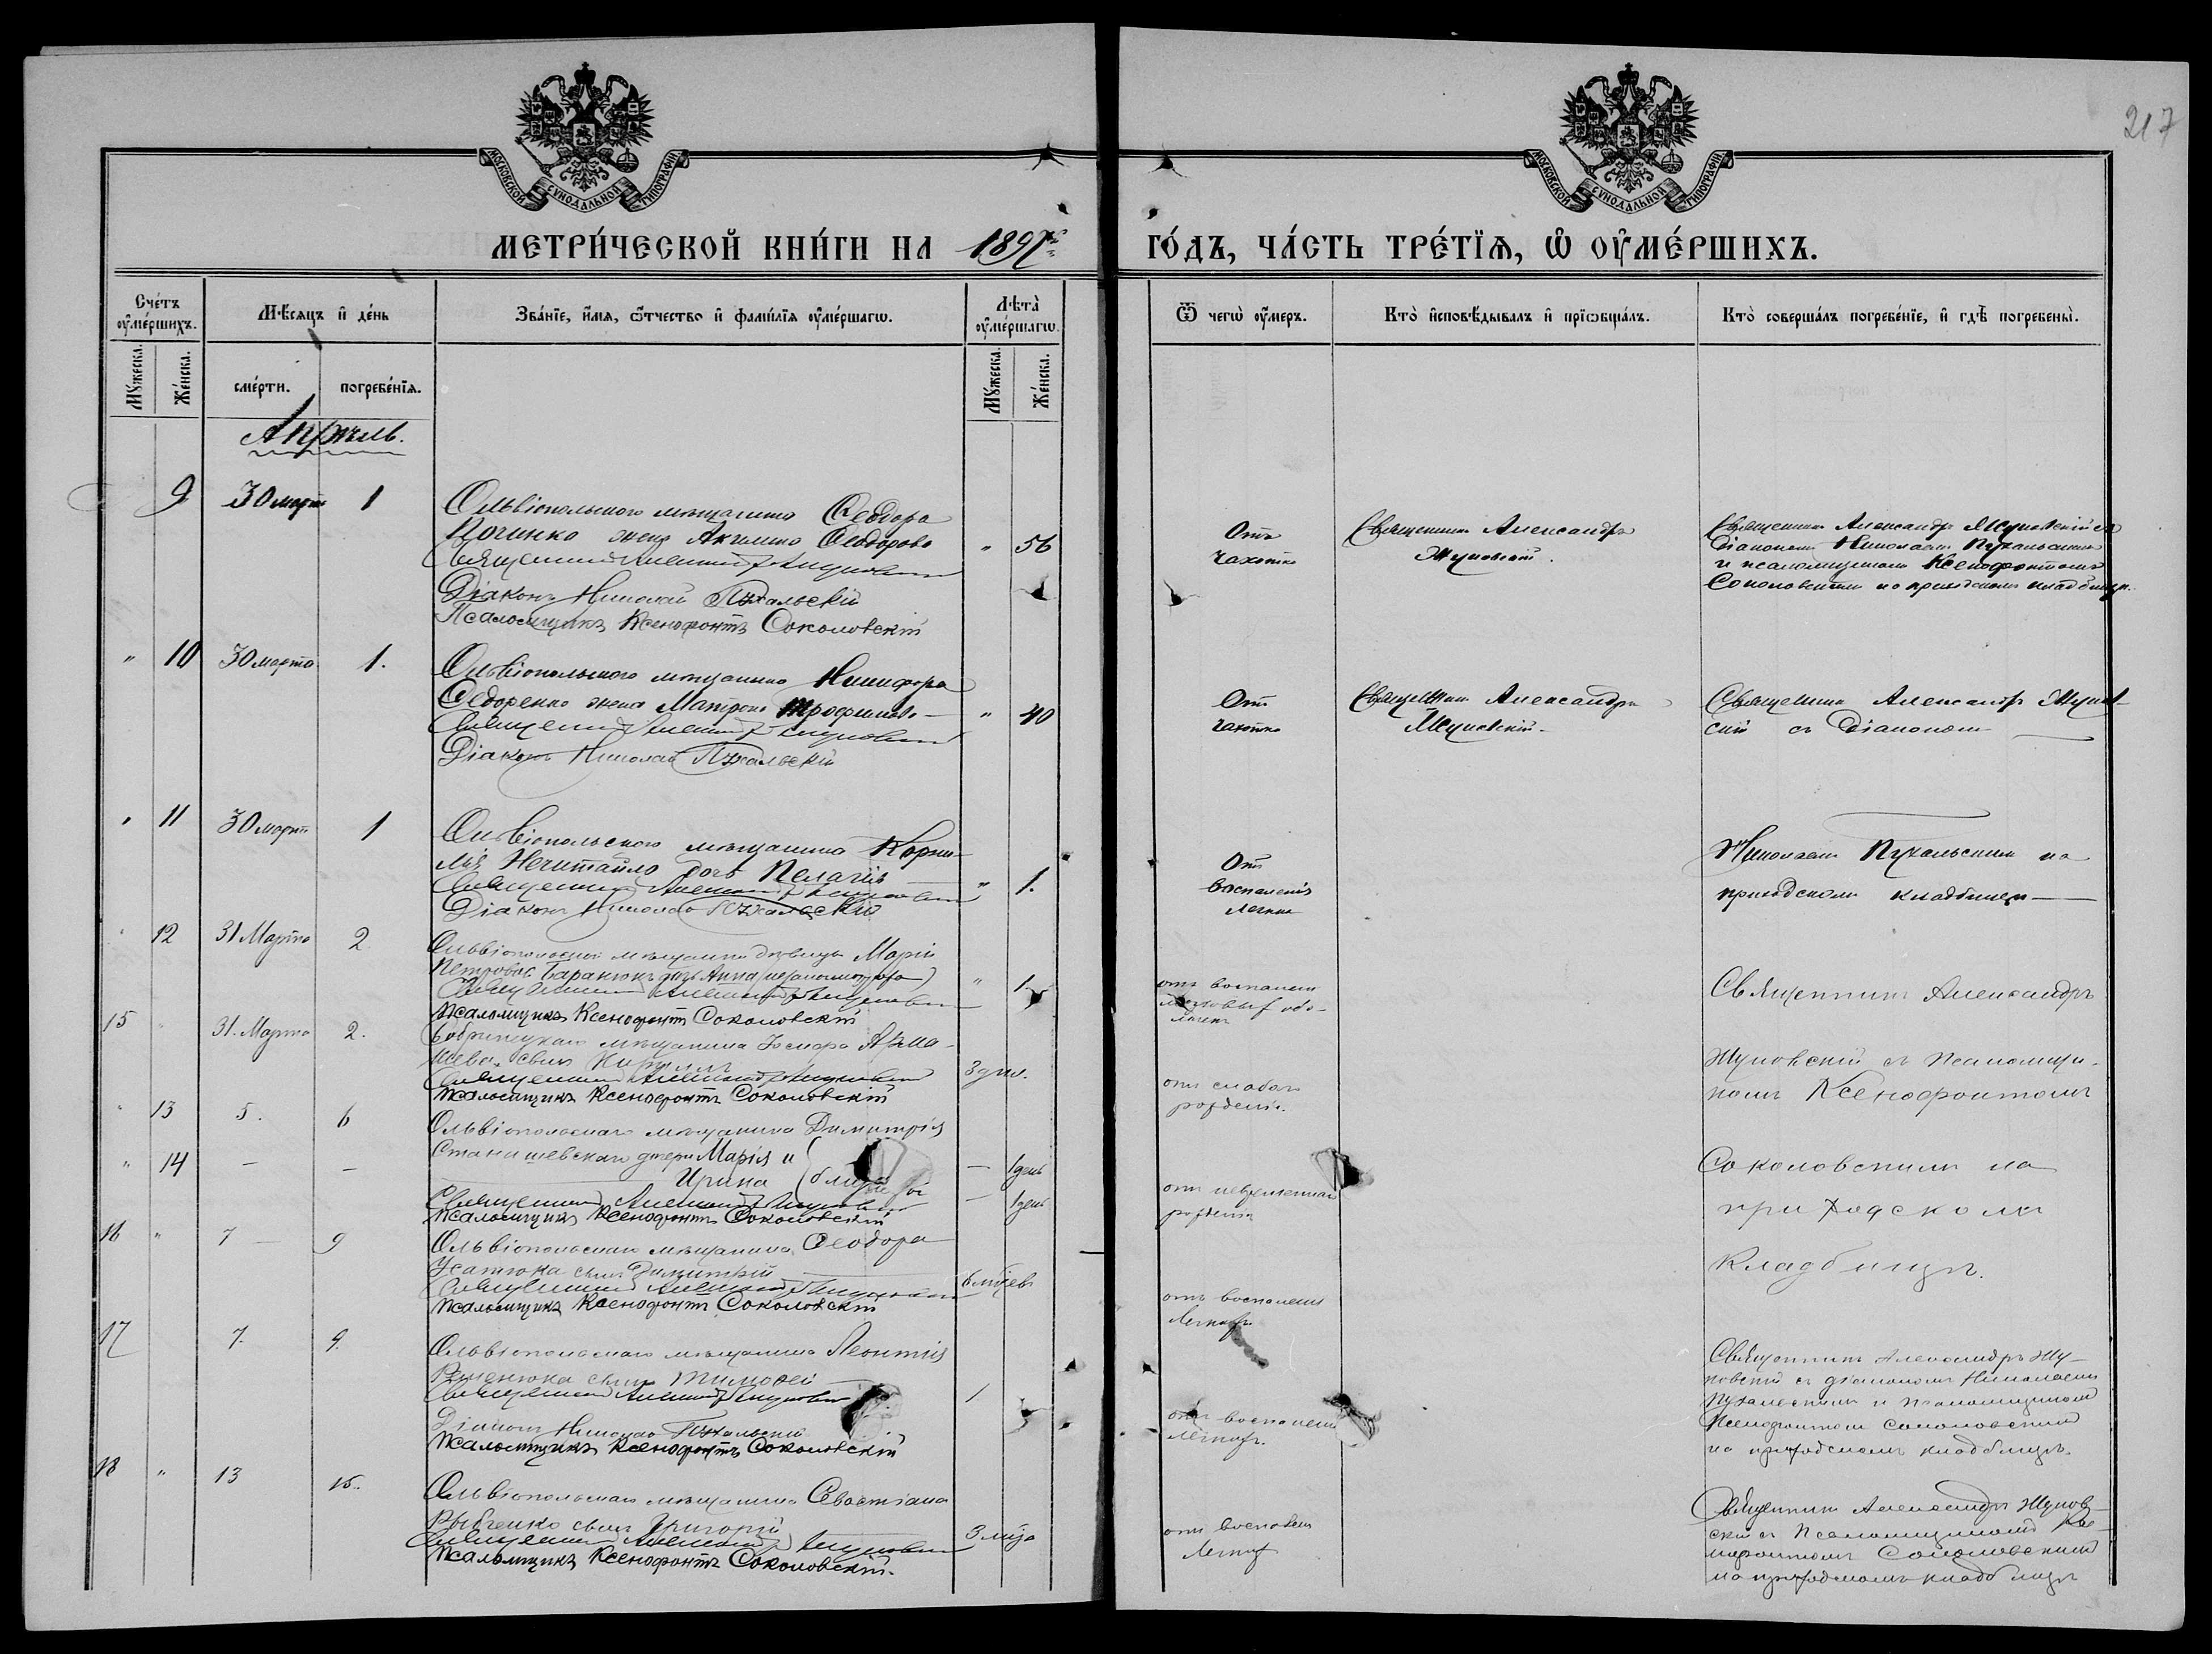 217
МОСКОВСКОЙ СѴНОДАЛЬНОЙ ТИПОГРАФІИ
МОСКОВСКОЙ СѴНОДАЛЬНОЙ ТИПОГРАФІИ
МЕТРИ́ЧЕСКОЙ КНИ́ГИ НА 1897й ГО́ДЪ, ЧА́СТЬ ТРЕ́ТЇѦ, Ѡ ОУ҆МЕ́РШИХЪ.
Сче́тъ оу҆ме́ршихъ.
Мꙋ́жеска.
Же́нска.
Мѣ́сяцъ и҆ де́нь
сме́рти.
погребе́нїѧ.
Зва́нїе, и҆́мѧ, ѻ҆́тчество и҆ фами́лїѧ оу҆ме́ршагѡ.
Лѣ́та оу҆ме́ршагѡ.
Мꙋ́жеска.
Же́нска.
Ѿ чегѡ̀ оу҆́меръ.
Кто̀ и҆сповѣ́дывалъ и҆ прїѡбща́лъ.
Кто̀ соверша́лъ погребе́нїе, и҆ гдѣ̀ погребены̀.
Апрѣль.
9 30 март 1
Ольвіопольского мѣщанина Ѳеодора
жена Акилина Ѳеодорова
" 56
Священник Александръ Жуковскій
Діаконъ Николай Пухальскій
Псаломщикъ Ксенофонтъ Соколовскій
Отъ
чахотки
Священникъ Александръ
Жуковскій.
Священникъ Александръ Жуковскій съ
діакономъ Николаемъ Пухальскимъ
и псаломщикомъ Ксенофонтомъ
Соколовскимъ на приходскомъ кладбищѣ.
" 10 30 марта 1.
Ольвіопольского мѣщанина Никифора
Федоренко жена Матрона Трофимова
" 40
Священник Александръ Жуковскій
Діаконъ Николай Пухальскій
Отъ
чахотки
Священникъ Александръ
Жуковскій
Священникъ Александръ Жуков-
скій съ Діакономъ
" 11 30 март 1
Ольвіопольского мѣщанина Корни-
лія Нечитайло дочь Пелагія
" 1.
Священник Александръ Жуковскій
Діаконъ Николай Пухальскій
Отъ
воспаленія
легких
Николаемъ Пухальскимъ на
приходскомъ кладбищѣ
" 12 31 Марта 2.
Ольвіопольской мѣщанки дѣвицы Маріи
Петровой дочь Анна
" 1.
Священник Александръ Жуковскій
Псаломщикъ Ксенофонтъ Соколовскій
отъ воспаленія
мозговых обо-
лочекъ
Священникъ Александръ
15 " 31. Марта 2.
Бобринецкаго мѣщанина Іосифа
сынъ Кириллъ
3 дня.
Священник Александръ Жуковскій
Псаломщикъ Ксенофонтъ Соколовскій
отъ слабаго
рожденія.
Жуковскій съ Псаломщи-
комъ Ксенофонтомъ
" 13 5. 6
Ольвіопольскаго мѣщанина Димитрія
" 14 — —
Станишевскаго дочери Марія и
Ирина
— 1 день
— 1 день
Священник Александръ Жуковскій
Псаломщикъ Ксенофонтъ Соколовскій
отъ
рожденія
Соколовскимъ на
приходскомъ
кладбищѣ.
16 " 7 — 9
Ольвіопольскаго мѣщанина Ѳеодора
Усатюка сынъ Димитрій
Священник Александръ Жуковскій
Псаломщикъ Ксенофонтъ Соколовскій
отъ воспаленія
легкихъ
17 7. 9.
Ольвіопольскаго мѣщанина Леонтія
сынъ Тимоѳей
1
Священник Александръ Жуковскій
Діаконъ Николай Пухальскій
Псаломщикъ Ксенофонтъ Соколовскій
отъ воспаленія
легкихъ.
Священникъ Александръ Жу-
ковскій съ діакономъ Николаемъ
Пухальскимъ и псаломщикомъ
Ксенофонтомъ Соколовскимъ
на приходскомъ кладбищѣ.
18 " 13 15.
Ольвіопольскаго мѣщанина Севастіана
Рыбченко сынъ Григорій
Священник Александръ Жуковскій
Псаломщикъ Ксенофонтъ Соколовскій.
отъ воспален
легких
Священникъ Александръ Жуков-
скій съ Псаломщикомъ Ксе-
нофонтомъ Соколовскимъ
на приходскомъ кладбищѣ